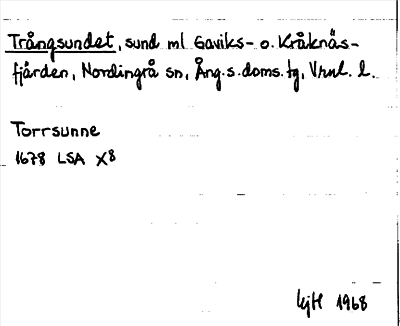 Trångsundet, sund ml Gaviks- o. Kråknäs-
fjärden, Nordingrå sn, Ång. s. doms. tg, Vrnl. l.
Torrsunne
1678 LSA X8
LjH 1968